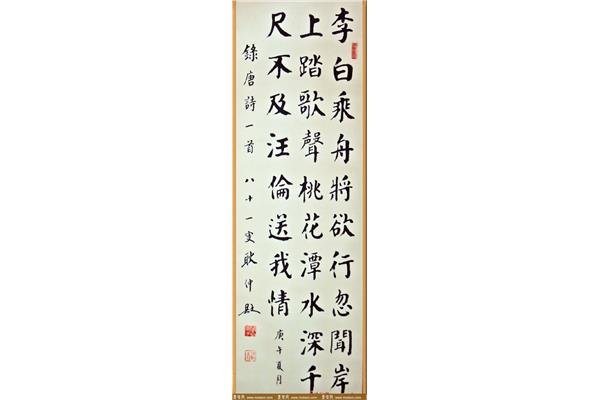 李白乘舟將欲行忽聞岸
上踏歌聲桃花潭水深千
尺不及汪倫送我情 庚午夏月
錄唐詩一首 八十一叟耿仲